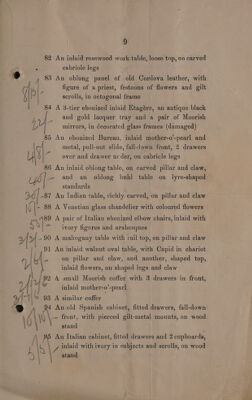 9
82 An inlaid rosewood work table, loose top, on carved
cabriole legs
83 An oblong panel of old Cordova leather, with
figure of a priest, festoons of flowers and gilt
scrolls, in octagonal frame
84 A 3-tier ebonized inlaid Etagère, an antique black
and gold lacquer tray and a pair of Moorish
mirrors, in decorated glass frames (damaged)
85 An ebonized Bureau, inlaid mother-o'-pearl and
metal, pull-out slide, fall-down front, 2 drawers
over and drawer under, on cabriole legs
86 An inlaid oblong table, on carved pillar and claw,
and an oblong buhl table on lyre-shaped
standards
87 An Indian table, richly carved, on pillar and claw
88 A Venetian glass chandelier with coloured flowers
89 A pair of Italian ebonized elbow chairs, inlaid with
ivory figures and arabesques
90 A mahogany table with rail top, on pillar and claw
91 An inlaid walnut oval table, with Cupid in chariot
on pillar and claw, and another, shaped top,
inlaid flowers, on shaped legs and claw
92 A small Moorish coffer with 3 drawers in front,
inlaid mother-o'-pearl
93 A similar coffer
94 An old Spanish cabinet, fitted drawers, fall-down
front, with pierced gilt-metal mounts, on wood
stand
95 An Italian cabinet, fitted drawers and 2 cupboards,
inlaid with ivory in subjects and scrolls, on wood
stand